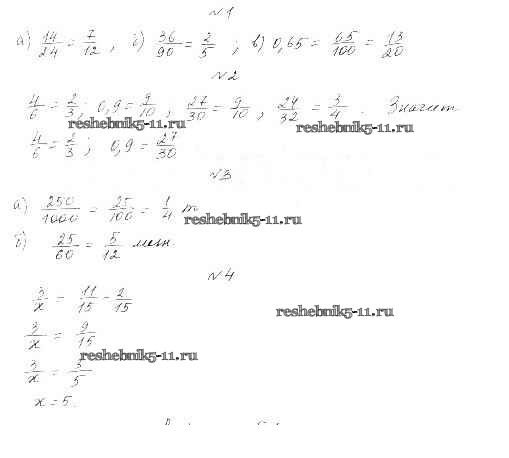 №1
а) 14/24 = 7/12, б) 36/90 = 2/5; в) 0,65 = 65/100 = 13/20
№2
4/6 = 2/3; 0,9 = 9/10, 27/30 = 9/10, 24/32 = 3/4. Значит
reshebnik5-11.ru
reshebnik5-11.ru
4/6 = 2/3; 0,9 = 27/30
№3
а) 250/1000 = 25/100 = 1/4 т
reshebnik5-11.ru
б) 25/60 = 5/12 мин.
№4
3/x = 11/15 - 2/15
reshebnik5-11.ru
3/x = 9/15
reshebnik5-11.ru
3/x = 3/5
x = 5.